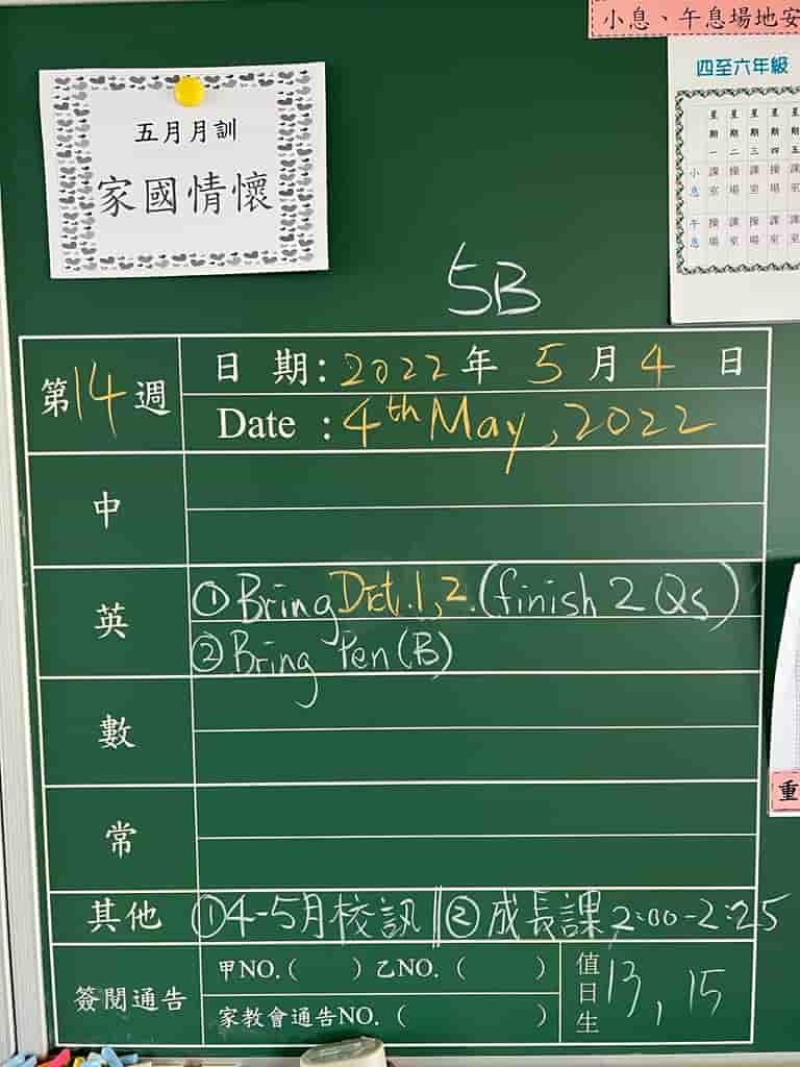 小息、午息場地安
四至六年級
星期一 星期二 星期三 星期四 星期五
小息 課室 操場 課室 操場 課室
午息 操場 課室 操場 課室
五月月訓
家國情懷
5B
第14週
日期:2022年5月4日
Date :4th May, 2022
中
英
①Bring Dict.1,2.(finish 2 Qs)
②Bring Pen(B)
數
常
其他 ①4-5月校訊||②成長課 2:00-2:25
簽閱通告
甲NO.( )乙NO.( )
家教會通告NO.( )
值日生 13, 15
重